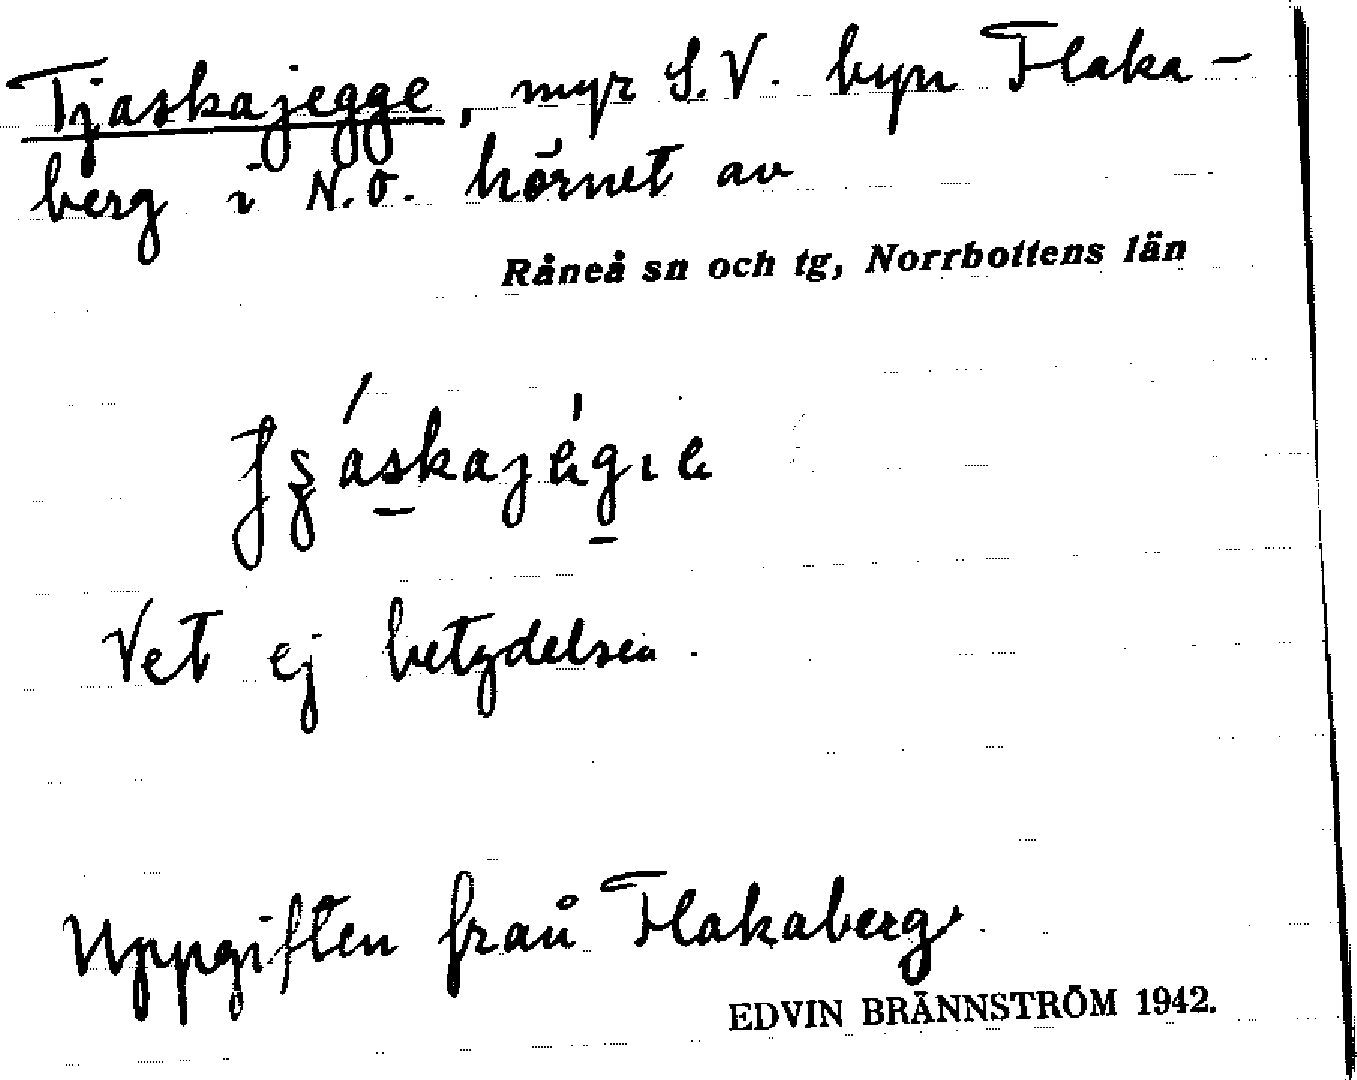 Tjaskajegge, myr S.V. byn Flaka-
berg i N.O. hörnet av
Råneå sn och tg, Norrbottens län
Vet ej betydelsen.
Uppgiften från Flakaberg.
EDVIN BRÄNNSTRÖM 1942.